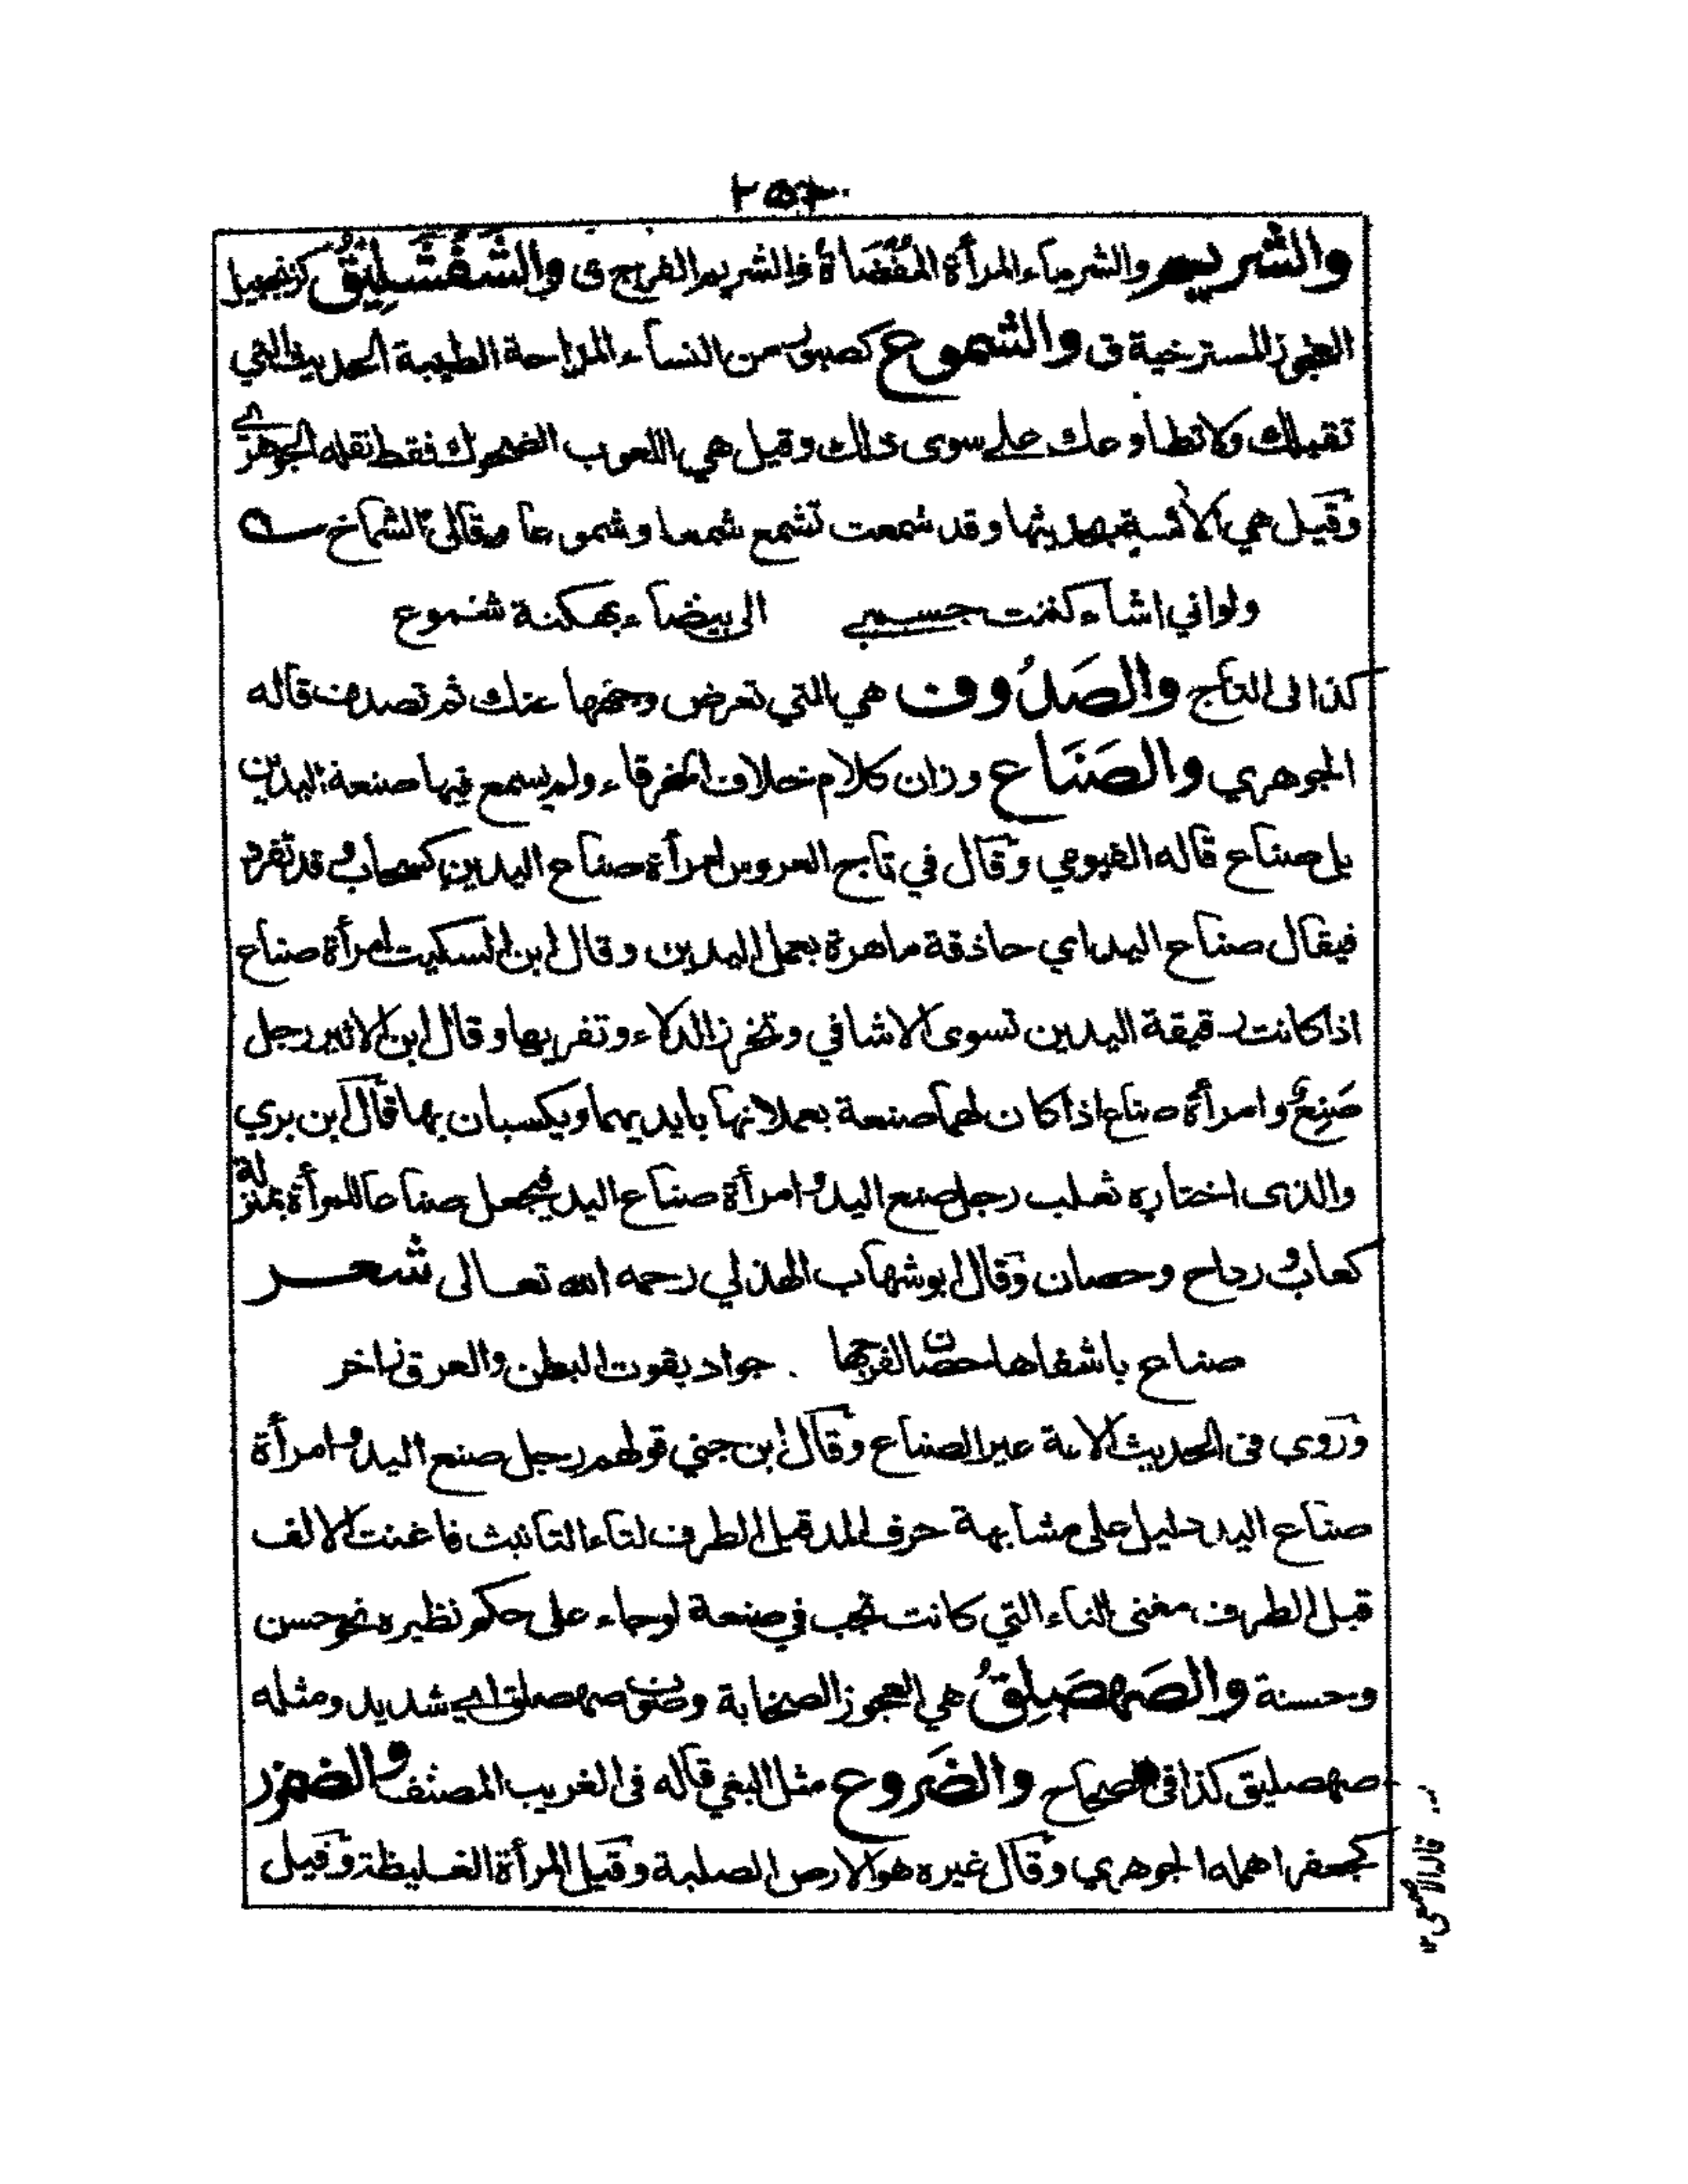 والشريم والشرماء المرأة المُفْضَاة والشريم الفرج ق والشَفْشَلِيْقُ كزنجبيل
العجوز المسترخية ق والشموع كصبور من النساء المزاحة الطيبة الحديث التي
تقبلك ولا تطاوعك على سوى ذلك وقيل هي اللعوب الضحوك فقط نقله الجوهري
وقيل هي الآنسة بحديثها وقد شمعت تشمع شمعا وشموعا وقال الشماخ
ولو اني اشاء كننت جسمي الى بيضاء بهكنة شموع
كذا فى التاج والصَدُوف هي التي تعرض وجهها عنك ثم تصدف قاله
الجوهري والصَنَاع وزان كلام خلاف الخرقاء ولم يسمع فيها صنعة اليدين
بل صناع قاله الفيومي وقال في تاج العروس امرأة صناع اليدين كسحاب وقد تفرد
فيقال صناع اليد اي حاذقة ماهرة بعمل اليدين وقال ابن السكيت امرأة صناع
اذا كانت رقيقة اليدين تسوى الاشافي وتخرز الدلاء وتفريها وقال ابن الاثير رجل
صَنِعٌ وامرأة صناع اذا كان لهما صنعة يعملانها بايديهما ويكسبان بها قال ابن بري
والذى اختاره ثعلب رجل صنع اليد وامرأة صناع اليد فيجعل صناعا للمرأة بمنزلة
كعاب ورداح وحصان وقال ابو شهاب الهذلي رحمه الله تعالى شعر
صناع باشفاها حصان لفرجها جواد بقوت البطن والعرق زاخر
وروى فى الحديث الامة غير الصناع وقال ابن جني قولهم رجل صنع اليد وامرأة
صناع اليد دليل على مشابهة حرف المد قبل الطرف لتاء التانيث فاغنت الالف
قبل الطرف مغنى التاء التي كانت تجب في صنعة لو جاء على حكم نظيره نحو حسن
وحسنة والصَهصَلِقُ هي العجوز الصخابة وصوت صهصلق اي شديد ومثله
صهصليق كذا فى الصحاح والضَروع مثل البغي قاله فى الغريب المصنف والضمزر
كجعفر اهمله الجوهري وقال غيره هو الارض الصلبة وقيل المرأة الغليظة وقيل
قاله الاصمعي ١٢